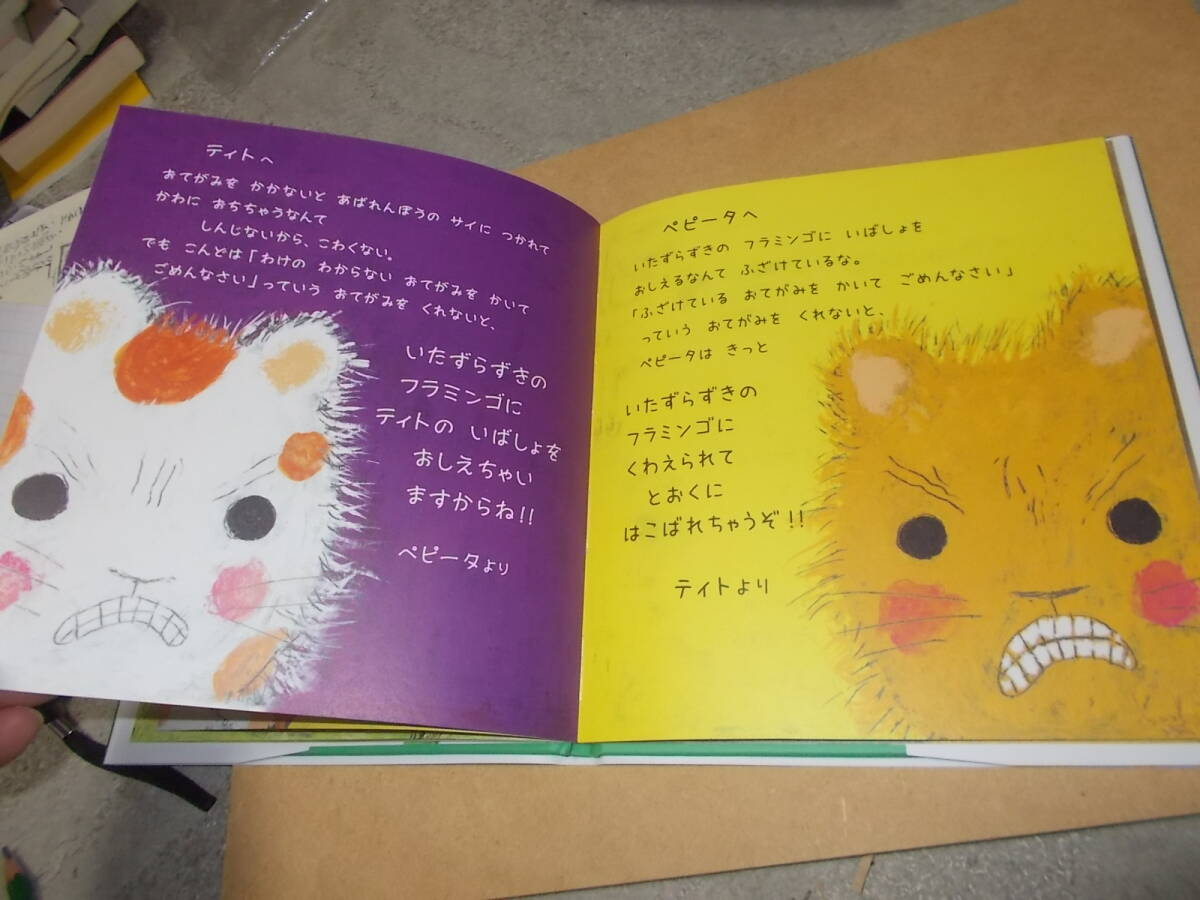 ティトへ
おてがみを かかないと あばれんぼうの サイに つかれて
かわに おちちゃうなんて
しんじないから、こわくない。
でも こんどは「わけの わからない おてがみを かいて
ごめんなさい」っていう おてがみを くれないと、
いたずらずきの
フラミンゴに
ティトの いばしょを
おしえちゃい
ますからね!!
ペピータより
ペピータへ
いたずらずきの フラミンゴに いばしょを
おしえるなんて ふざけているな。
「ふざけている おてがみを かいて ごめんなさい」
っていう おてがみを くれないと、
ペピータは きっと
いたずらずきの
フラミンゴに
くわえられて
とおくに
はこばれちゃうぞ!!
ティトより